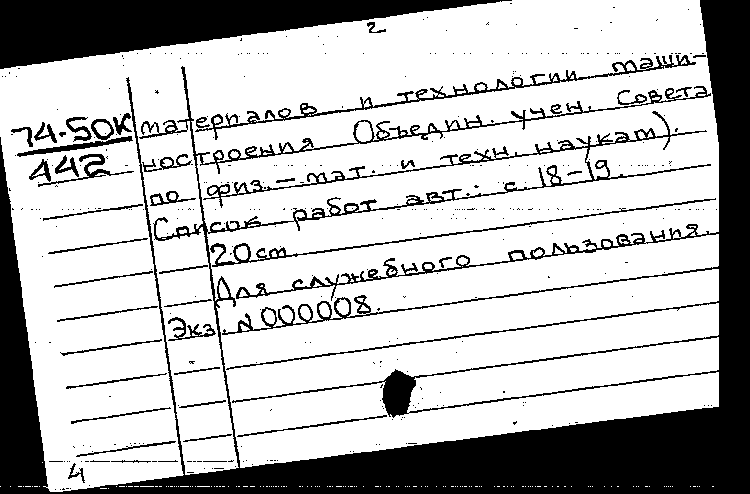 2
74-50К
442
материалов и технологии маши-
ностроения Объедин. учен. Совета
по физ.-мат. и техн. наукам).
Список работ авт.: с. 18-19.
20 cm.
Для служебного пользования.
Экз. N 000008.
4